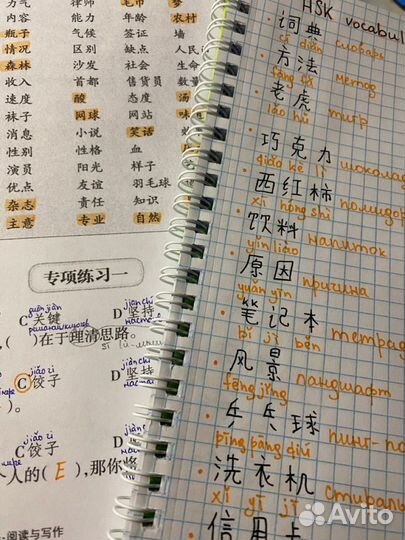 力 律师 毛巾 梦
内容 能力 年龄 农村
瓶子 气候 签证 墙
情况 区别 缺点 人民
森林 沙发 社会 生命
收入 首都 售货员 数量
速度 酸 态度 汤
袜子 网球 网站 味
消息 小说 笑话
性别 性格 血
演员 阳光 样子
优点 友谊 羽毛球
杂志 责任 知识
主意 专业 自然
专项练习一
guān jiàn jiān chí
C 关键 D 坚持
,( )在于理清思路。
jiǎo zi jiān chí
C 饺子 D 坚持
)。
jiǎo zi
C 饺子 D
个人的( E ),那你将
·阅读与写作
HSK vocabul
· 词典 словарь
cí diǎn
· 方法 метод
fāng fǎ
· 老虎 тигр
lǎo hǔ
· 巧克力 шоколад
qiǎo kè lì
· 西红柿 помидор
xī hóng shì
· 饮料 напиток
yǐn liào
· 原因 причина
yuán yīn
· 笔记本 тетрад
bǐ jì běn
· 风景 ландшафт
fēng jǐng
· 乒乓球 пинг-по
pīng pāng qiú
· 洗衣机 стираль
xǐ yī jī
信用卡
Avito